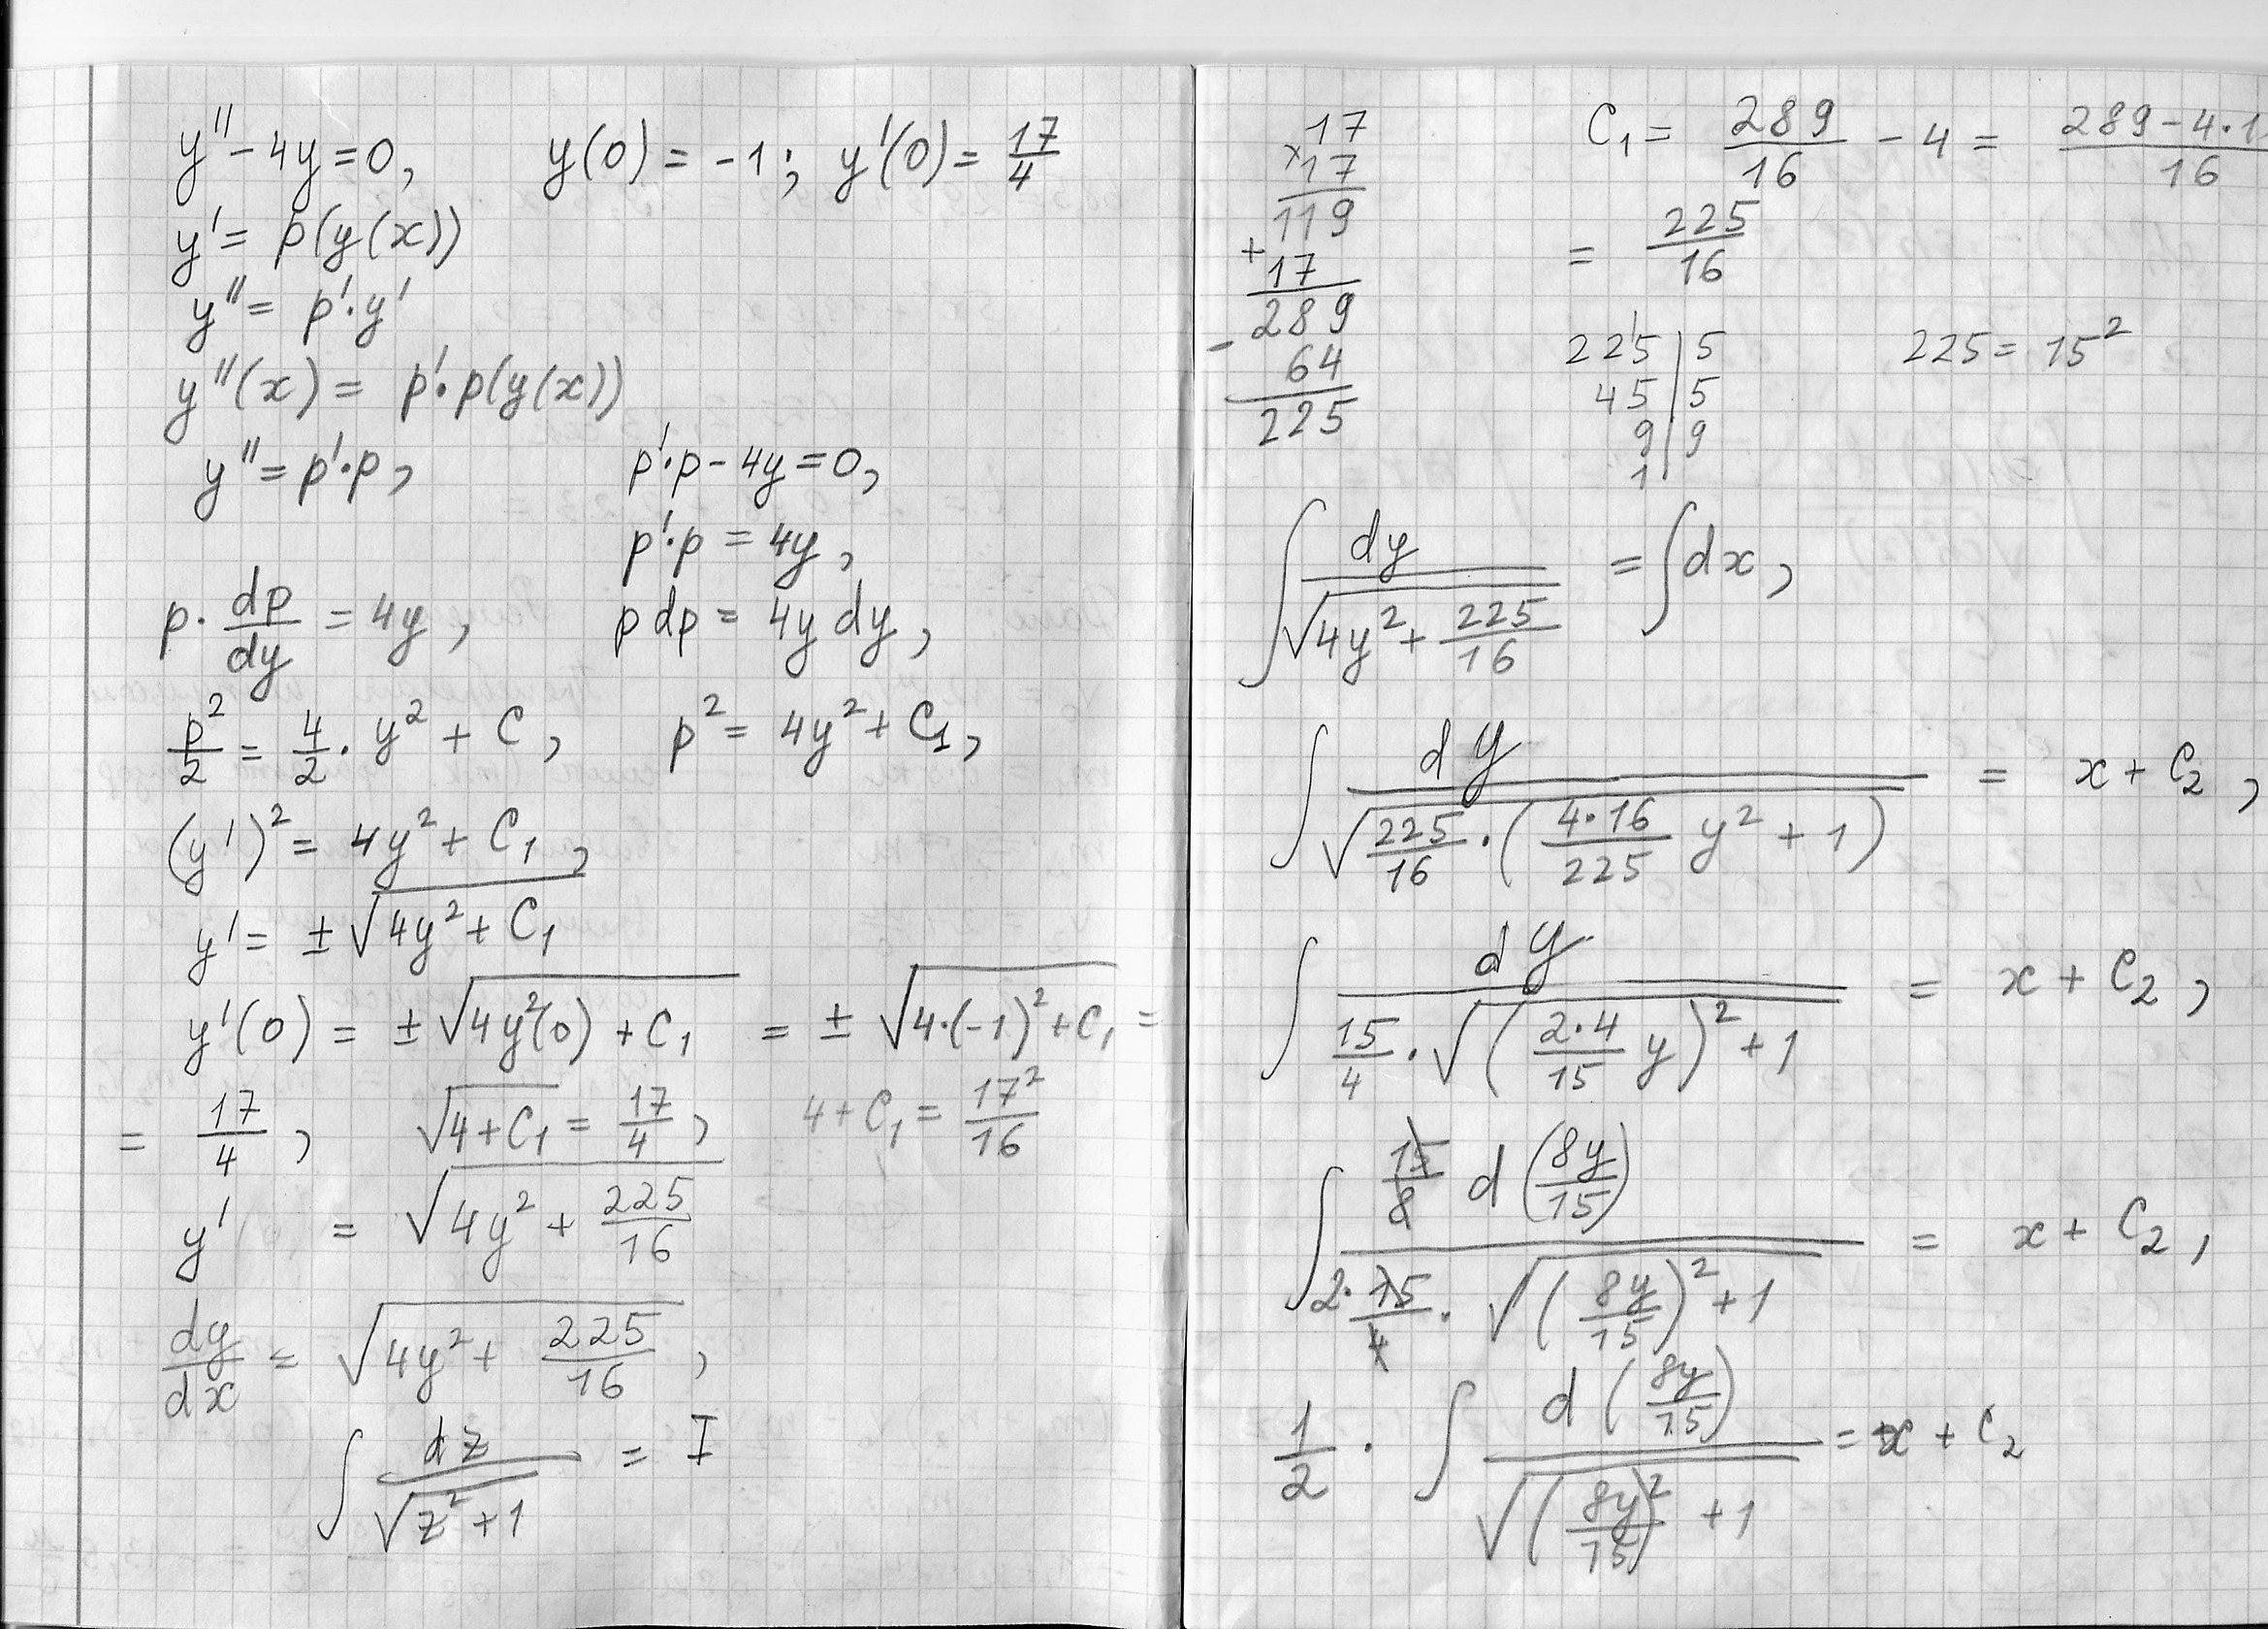 y'' - 4y = 0, y(0) = -1; y'(0) = 17/4
y' = p(y(x))
y'' = p'·y'
y''(x) = p'·p(y(x))
y'' = p'·p, p'·p - 4y = 0,
p'·p = 4y,
p · dp/dy = 4y, p dp = 4y dy,
p²/2 = 4/2 · y² + C, p² = 4y² + C₁,
(y')² = 4y² + C₁,
y' = ±√(4y² + C₁)
y'(0) = ±√(4y²(0) + C₁) = ±√(4·(-1)² + C₁) =
= 17/4, √(4 + C₁) = 17/4, 4 + C₁ = 17²/16
y' = √(4y² + 225/16)
dy/dx = √(4y² + 225/16),
∫ dz/√(z² + 1) = I
17
×17
119
+17
289
-64
225
C₁ = 289/16 - 4 = (289 - 4·1)/16
= 225/16
225 | 5
45 | 5
9 | 9
1 |
225 = 15²
∫ dy/√(4y² + 225/16) = ∫ dx,
∫ dy/√(225/16 · (4·16/225 y² + 1)) = x + C₂,
∫ dy/(15/4 · √((2·4/15 y)² + 1)) = x + C₂,
∫ 15/8 d(8y/15)/(2· 15/4 · √((8y/15)² + 1)) = x + C₂,
1/2 · ∫ d(8y/15)/√((8y/15)² + 1) = x + C₂